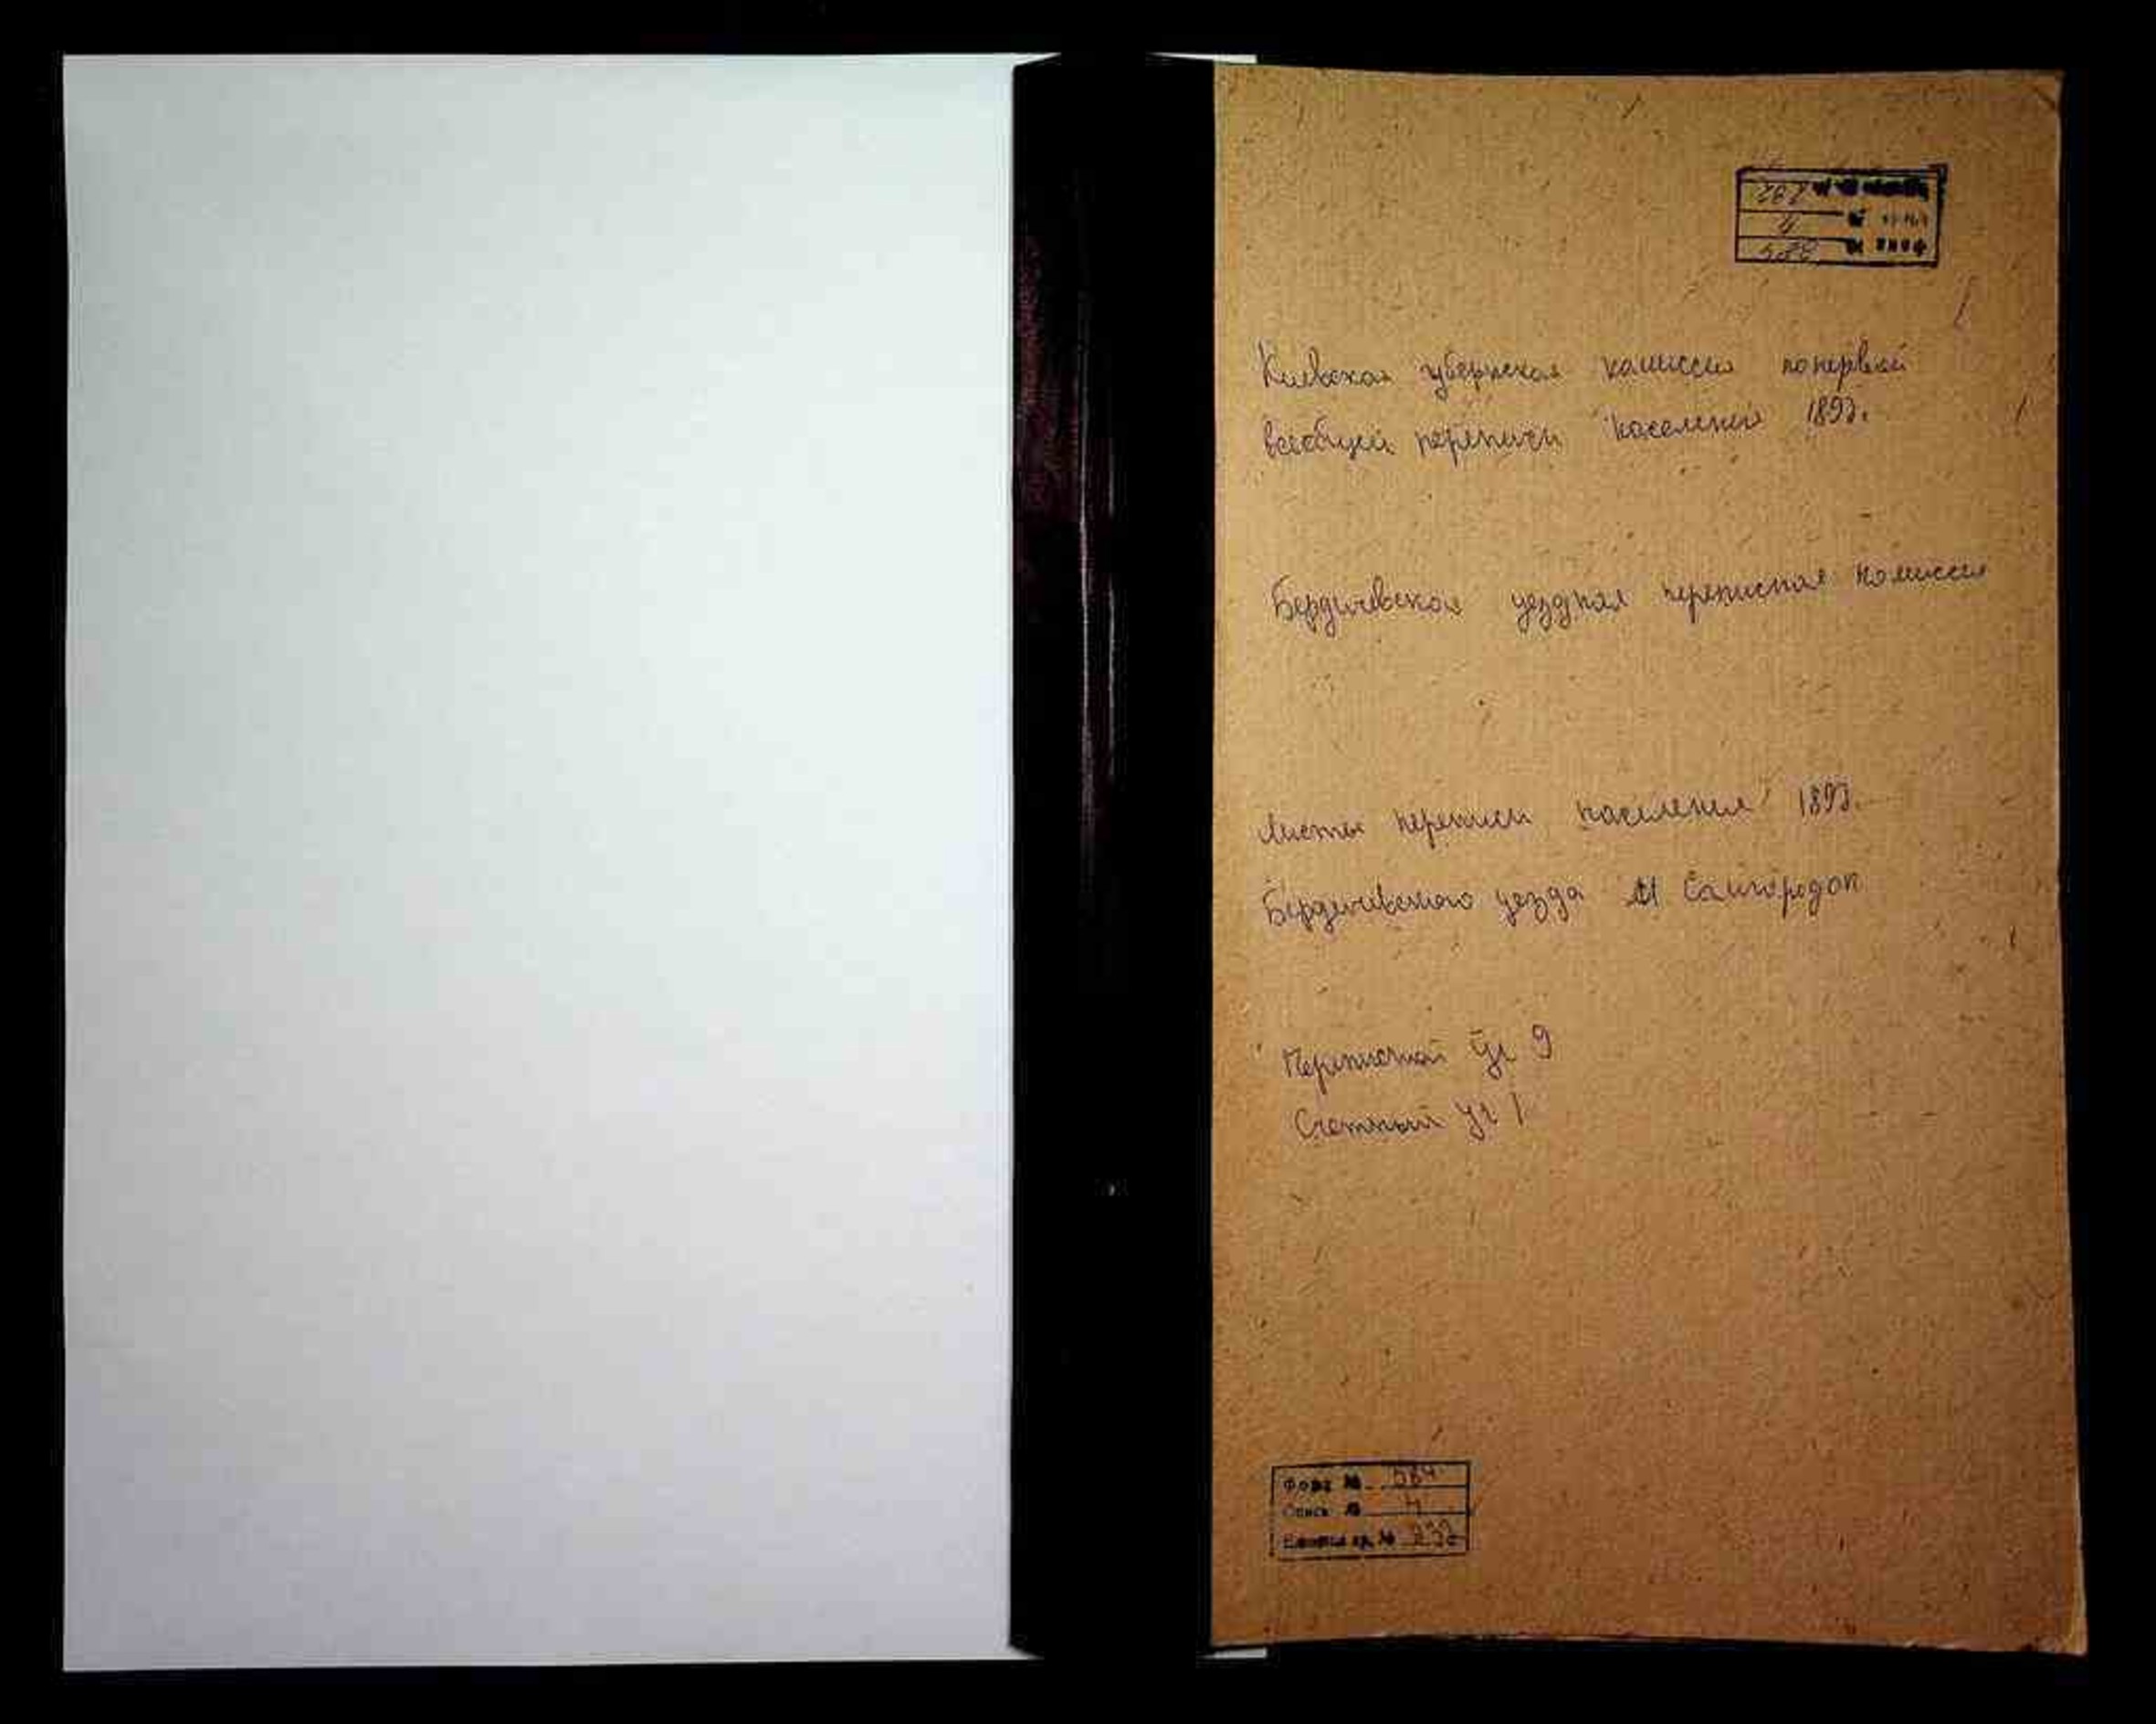 Фонд № 384
Опись № 4
Единица хр. № 232
Киевская губернская комиссия по первой
всеобщей переписи населения 1897.
Бердичевская уездная переписная комиссия
Листы переписи населения 1897.
Бердичевского уезда М Самгородок
Переписной уч 9
Счетный уч 1
Фонд № 384
Опись № 4
Единица хр. № 232